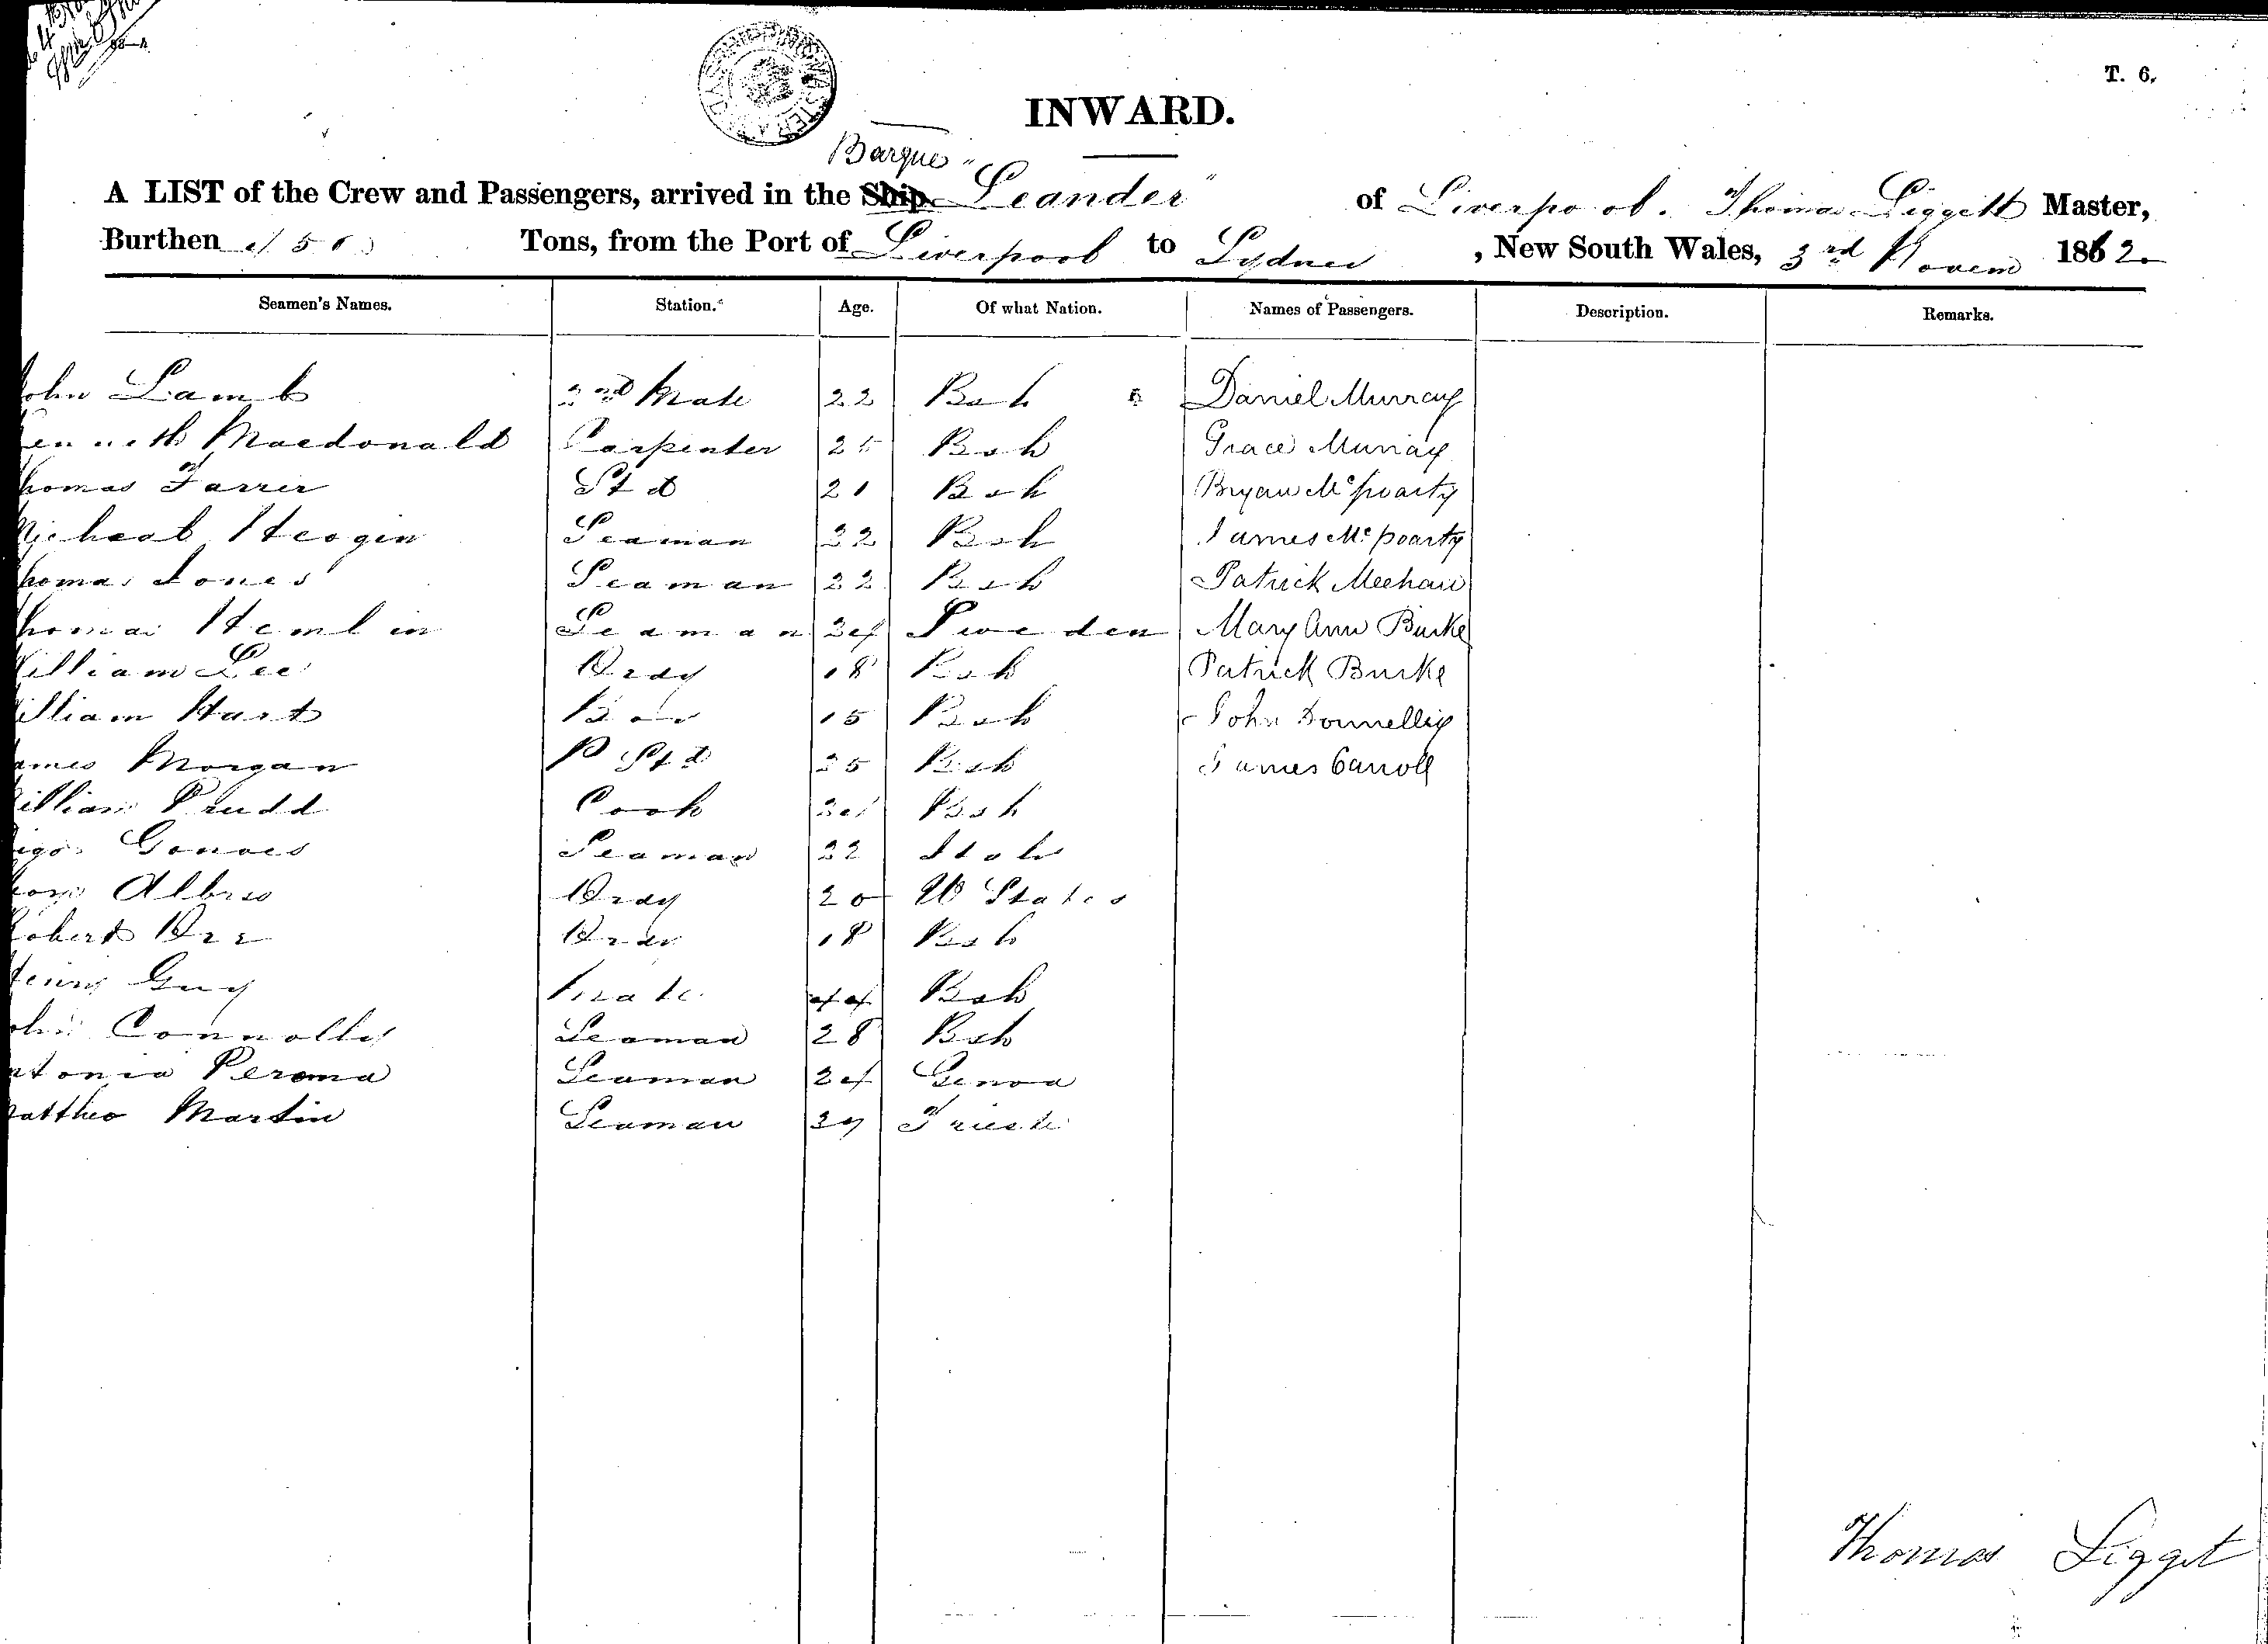 T. 6.
INWARD.
Barque
A LIST of the Crew and Passengers, arrived in the Ship "Leander" of Liverpool. Thomas Liggett Master,
Burthen Tons, from the Port of Liverpool to Sydney, New South Wales, 3rd Novem 1862.
Seamen's Names. Station. Age. Of what Nation. Names of Passengers. Description. Remarks.
ohn Lamb 2nd Mate 22 Bsh Daniel Murray
enneth Macdonald Carpenter Bsh Grace Murray
homas Farrer Std 21 Bsh Bryan
Micheal Seaman 22 Bsh James
homas Jones Seaman 22 Bsh Patrick Meehan
homas Hemlin Seaman 24 Sweden Mary Ann Burke
William Lee Ordy 18 Bsh Patrick Burke
illiam Hart Boy 15 Bsh John Donnelly
ames Morgan P Std 35 Bsh James Carroll
illiam Prudd Cook Bsh
Seaman 22
Ordy 20 U States
Robert Orr Ordy 18 Bsh
Henry Guy Mate 44 Bsh
ohn Connolly Seaman 28 Bsh
ntonio Seaman 24 Genoa
Mattheo Martin Seaman 39 Trieste
Thomas Ligget